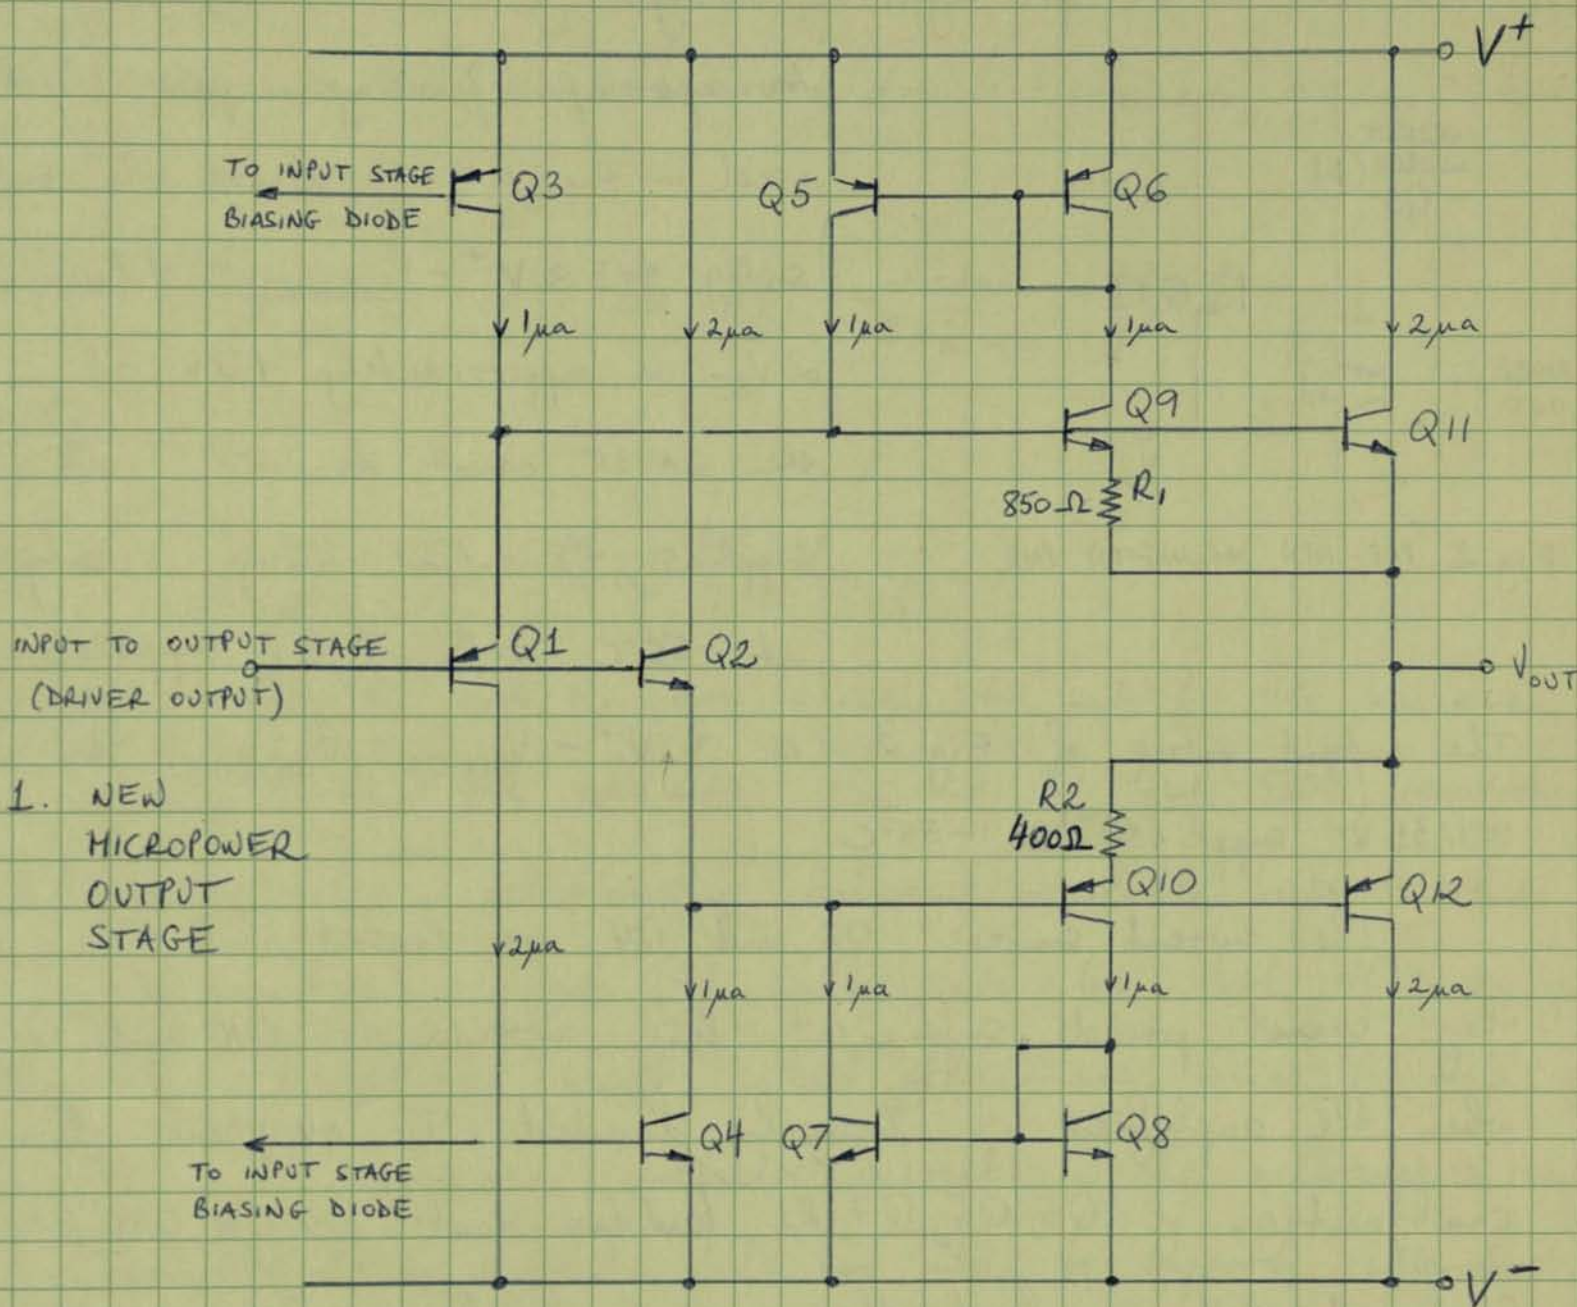 V+
TO INPUT STAGE
BIASING DIODE
Q3
Q5
Q6
1μa
2μa
1μa
1μa
2μa
Q9
Q11
850Ω
R1
INPUT TO OUTPUT STAGE
(DRIVER OUTPUT)
Q1
Q2
VOUT
1. NEW
MICROPOWER
OUTPUT
STAGE
R2
400Ω
Q10
Q12
2μa
1μa
1μa
1μa
2μa
Q4
Q7
Q8
TO INPUT STAGE
BIASING DIODE
V-